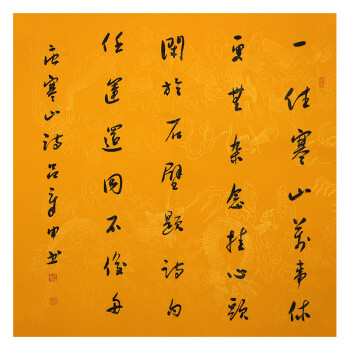 一住寒山萬事休
更無杂念挂心頭
閑於石壁題詩句
任運還同不繫舟
唐寒山詩 吕章申书